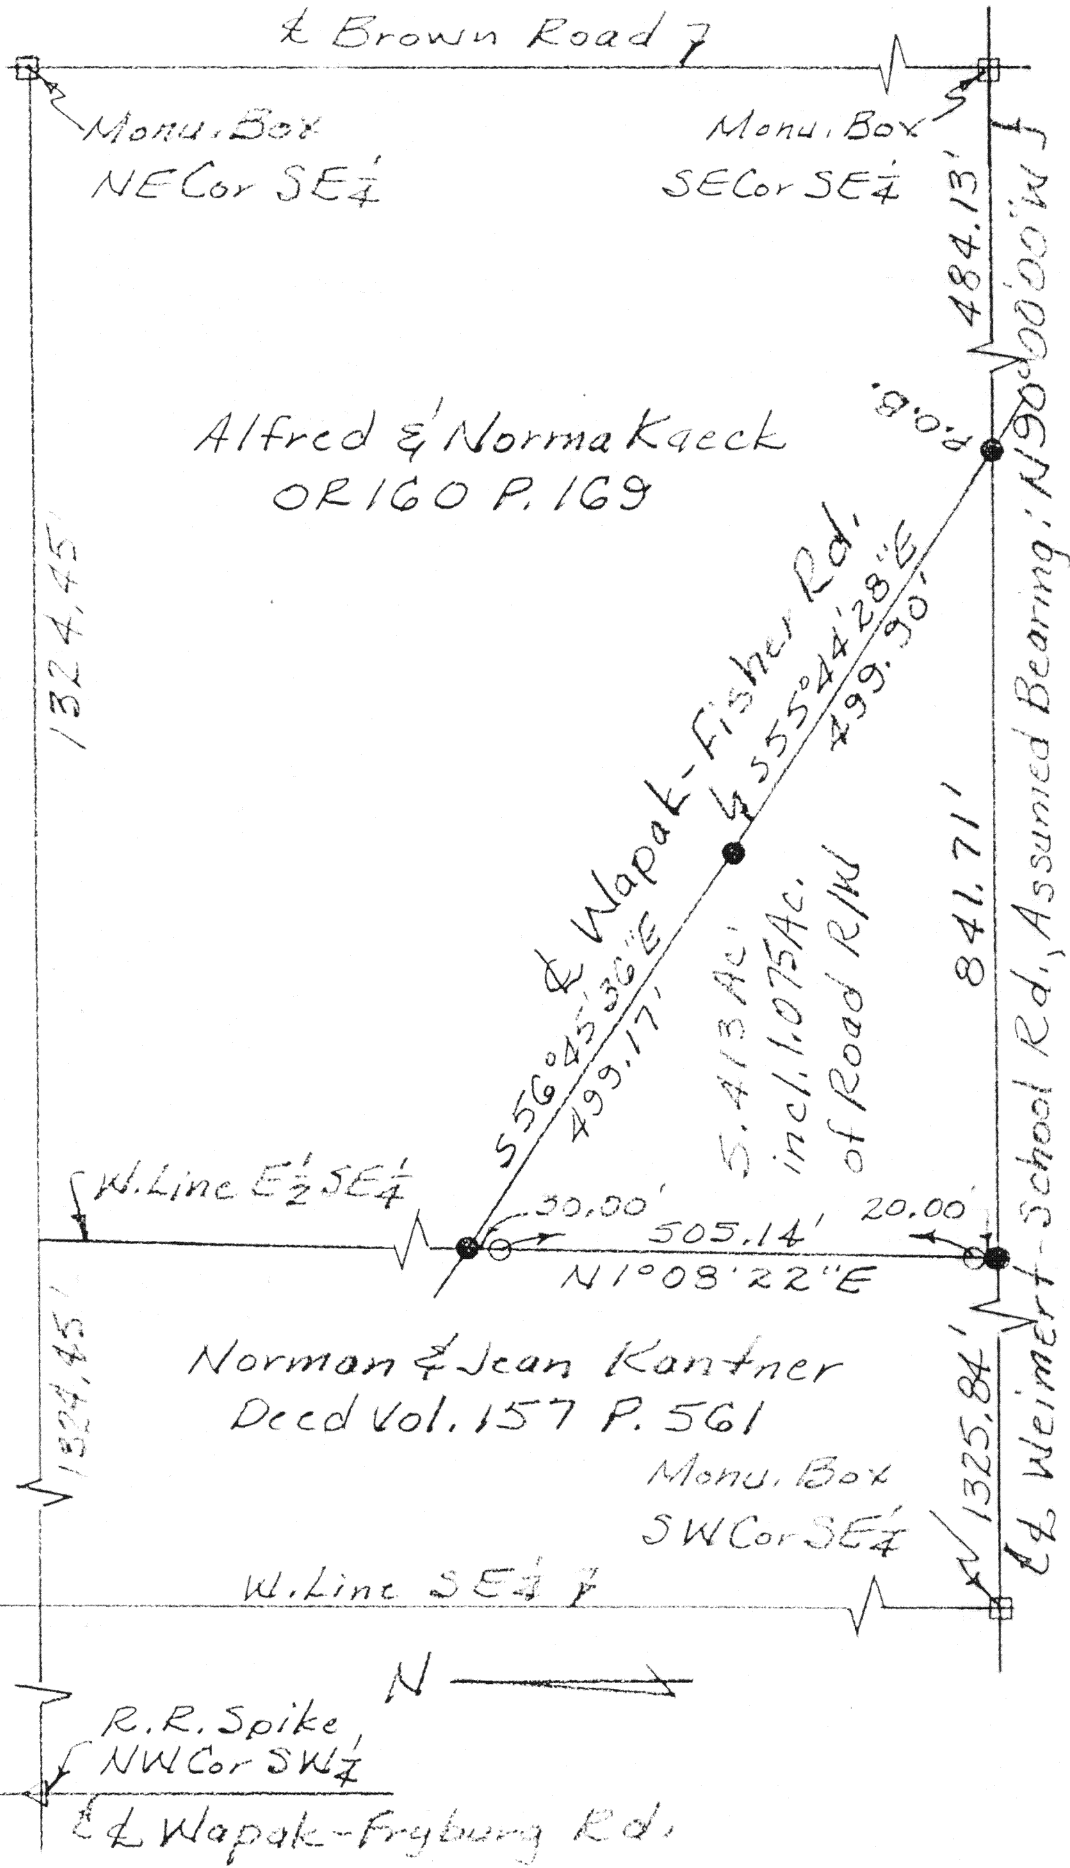 ℄ Brown Road
Monu. Box
NE Cor SE¼
Monu. Box
SE Cor SE¼
484.13'
P.O.B.
Alfred & Norma Kaeck
OR 160 P. 169
1324.45'
℄ Wapak-Fisher Rd.
S55°44'28"E
499.90'
S56°45'36"E
499.17'
5.413 Ac.
incl. 1.075 Ac.
of Road R/W
841.71'
℄ Weimert-School Rd., Assumed Bearing: N90°00'00"W
W. Line E½ SE¼
30.00'
505.14'
20.00'
N1°08'22"E
1324.45'
Norman & Jean Kantner
Deed Vol. 157 P. 561
1325.84'
Monu. Box
SW Cor SE¼
W. Line SE¼
N
R.R. Spike
NW Cor SW¼
℄ Wapak-Fryburg Rd.